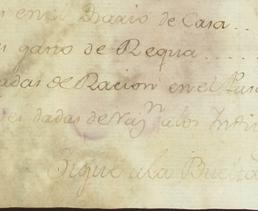 en el Diario de Casa..
gano de Requa.....
adas de Racion en el
dadas de Raz.n a los Indi
Sigue a la Buelta